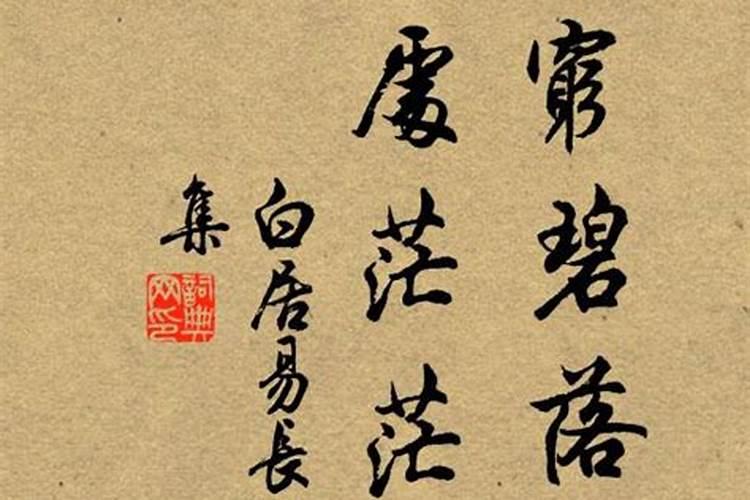 窮碧落
處茫茫
白居易長
集
詞典網印